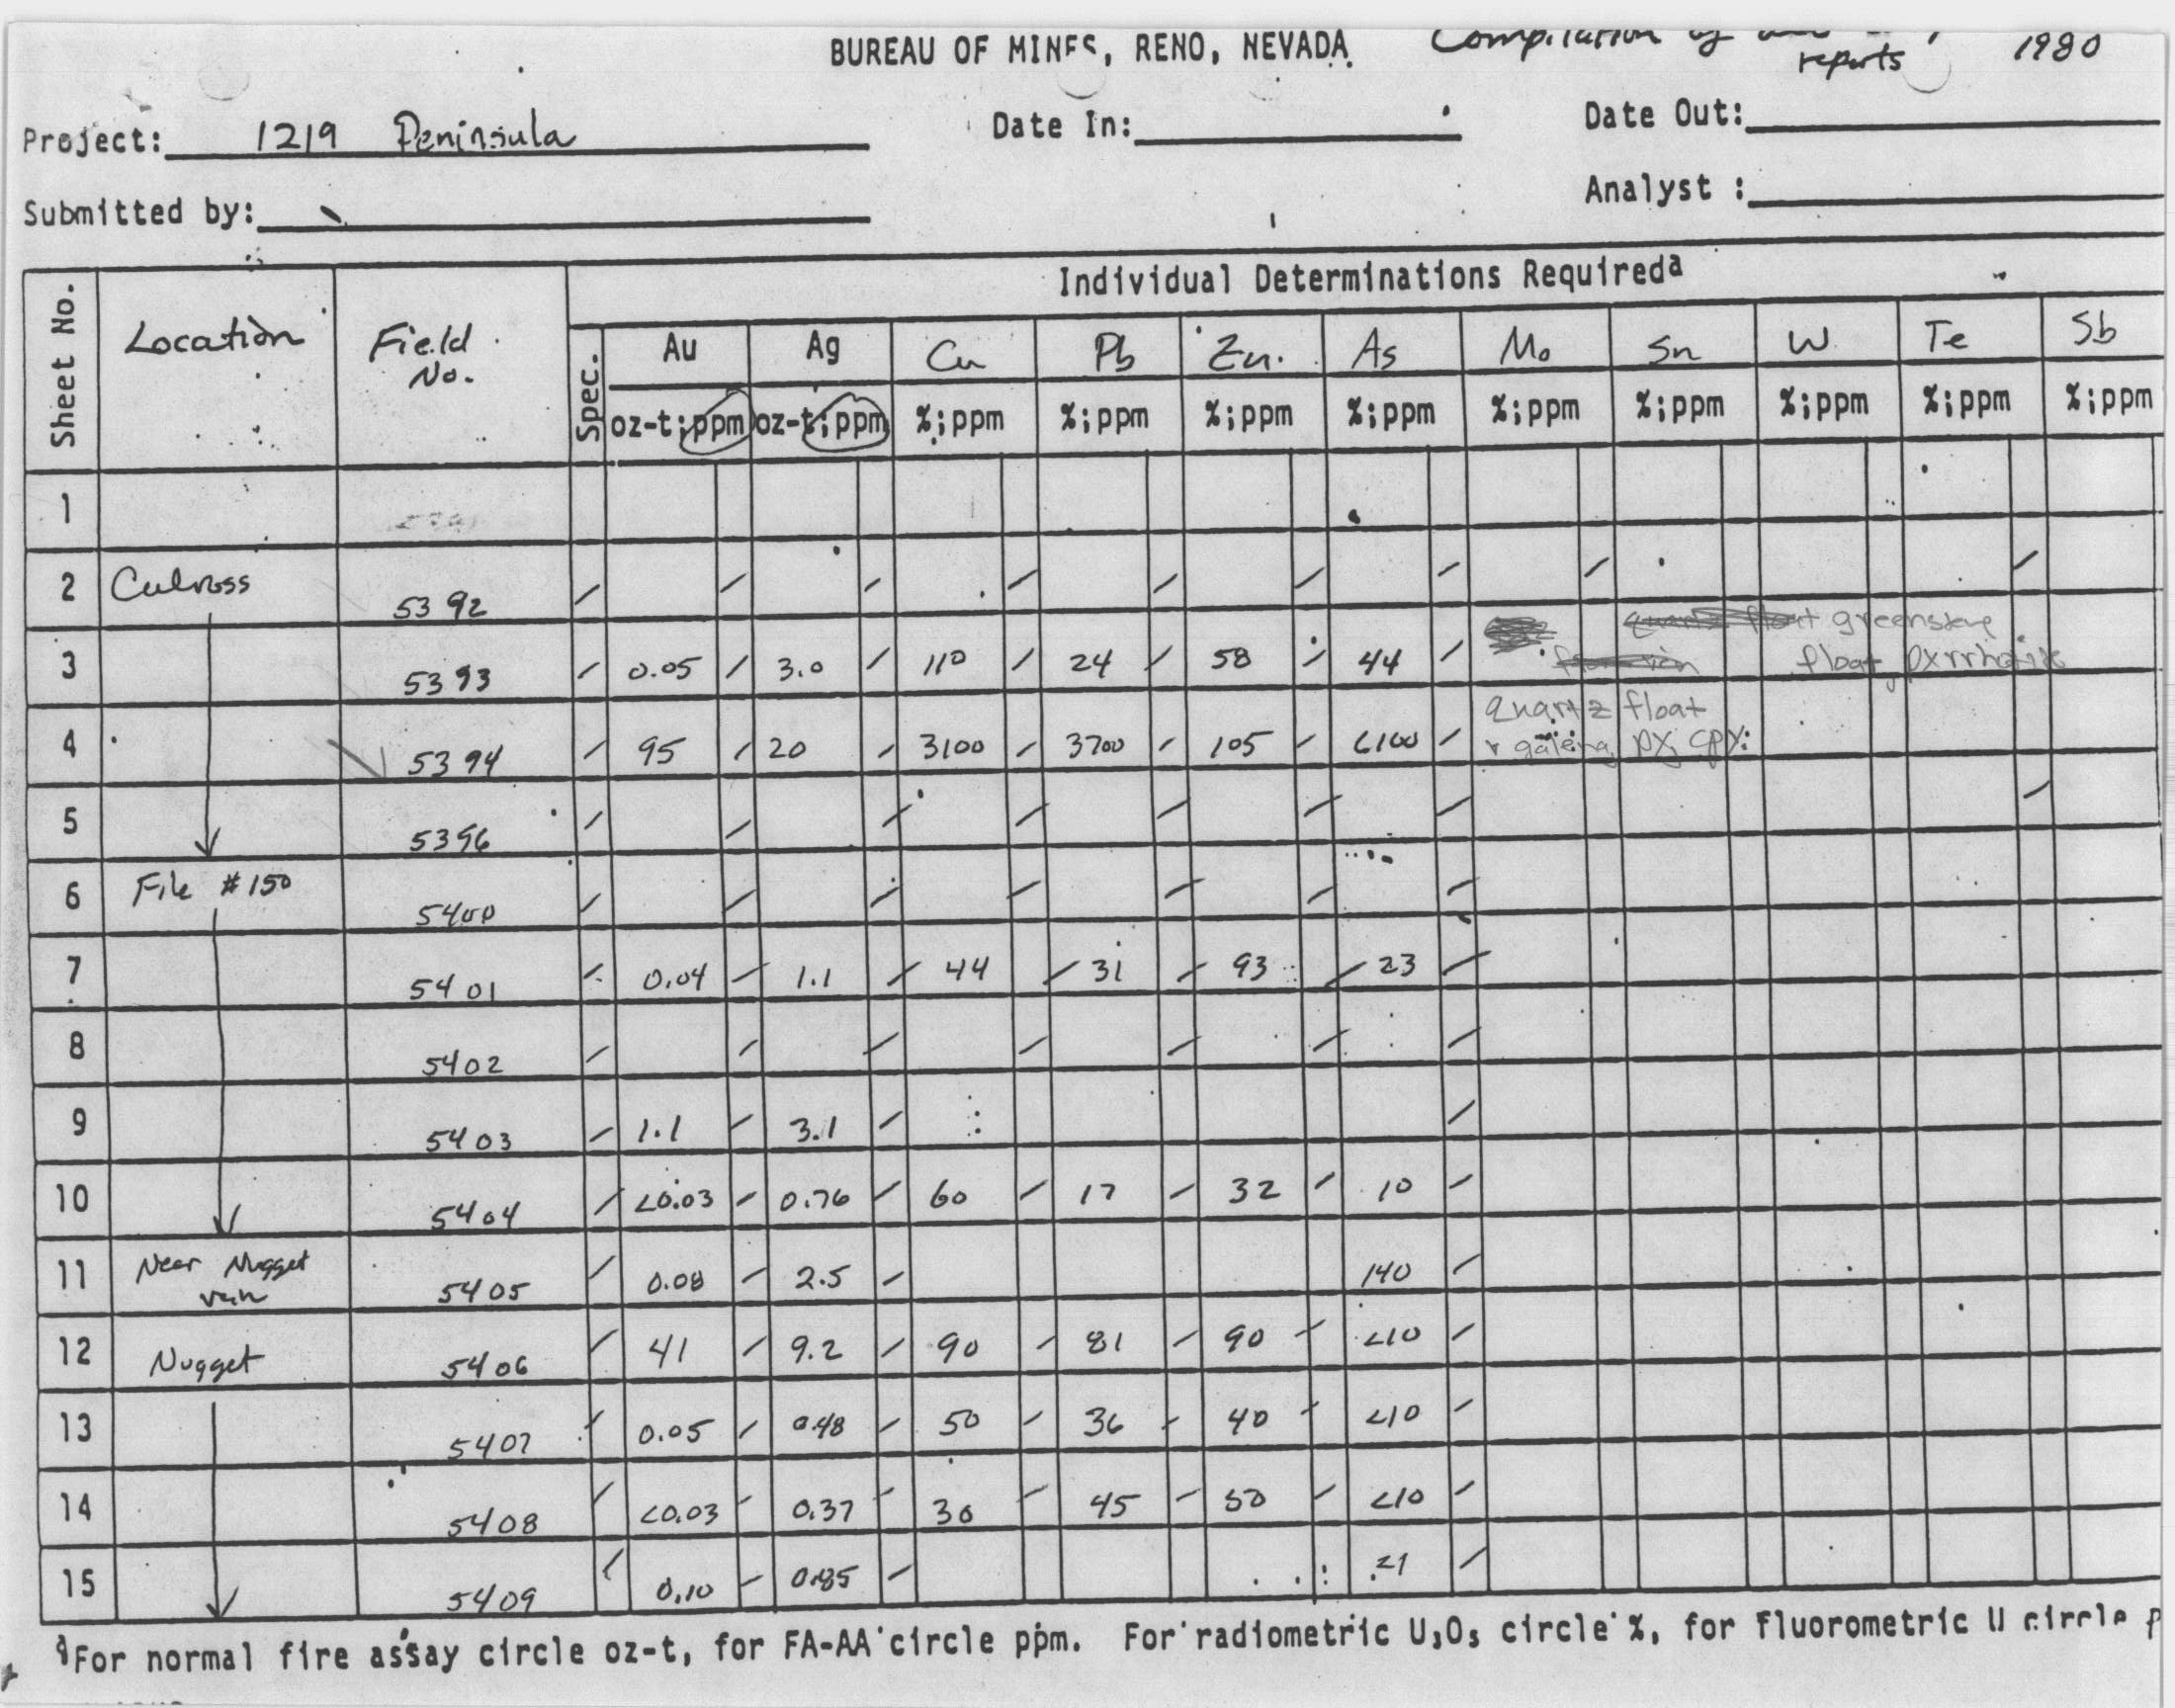 BUREAU OF MINES, RENO, NEVADA Compilation by reports 1980
Project: 1219 Peninsula Date In: Date Out:
Submitted by: Analyst :
Individual Determinations Required a
Sheet No. Location Field No. Spec. Au Ag Cu Pb Zn. As Mo Sn W Te Sb
oz-t;ppm oz-t;ppm %;ppm %;ppm %;ppm %;ppm %;ppm %;ppm %;ppm %;ppm %;ppm
1
2 Culross 5392
greenstone
3 5393 0.05 3.0 110 24 58 44 float
quartz float
4 5394 95 20 3100 3700 105 <100 galena, py, cpy
5 5396
6 File #150 5400
7 5401 0.04 1.1 44 31 93 23
8 5402
9 5403 1.1 3.1
10 5404 <0.03 0.76 60 17 32 10
11 Near Nugget vein 5405 0.08 2.5 140
12 Nugget 5406 41 9.2 90 81 90 <10
13 5407 0.05 0.48 50 36 40 <10
14 5408 <0.03 0.37 30 45 50 <10
15 5409 0.10 0.85
For normal fire assay circle oz-t, for FA-AA circle ppm. For radiometric U₃O₈ circle %, for fluorometric U circle p